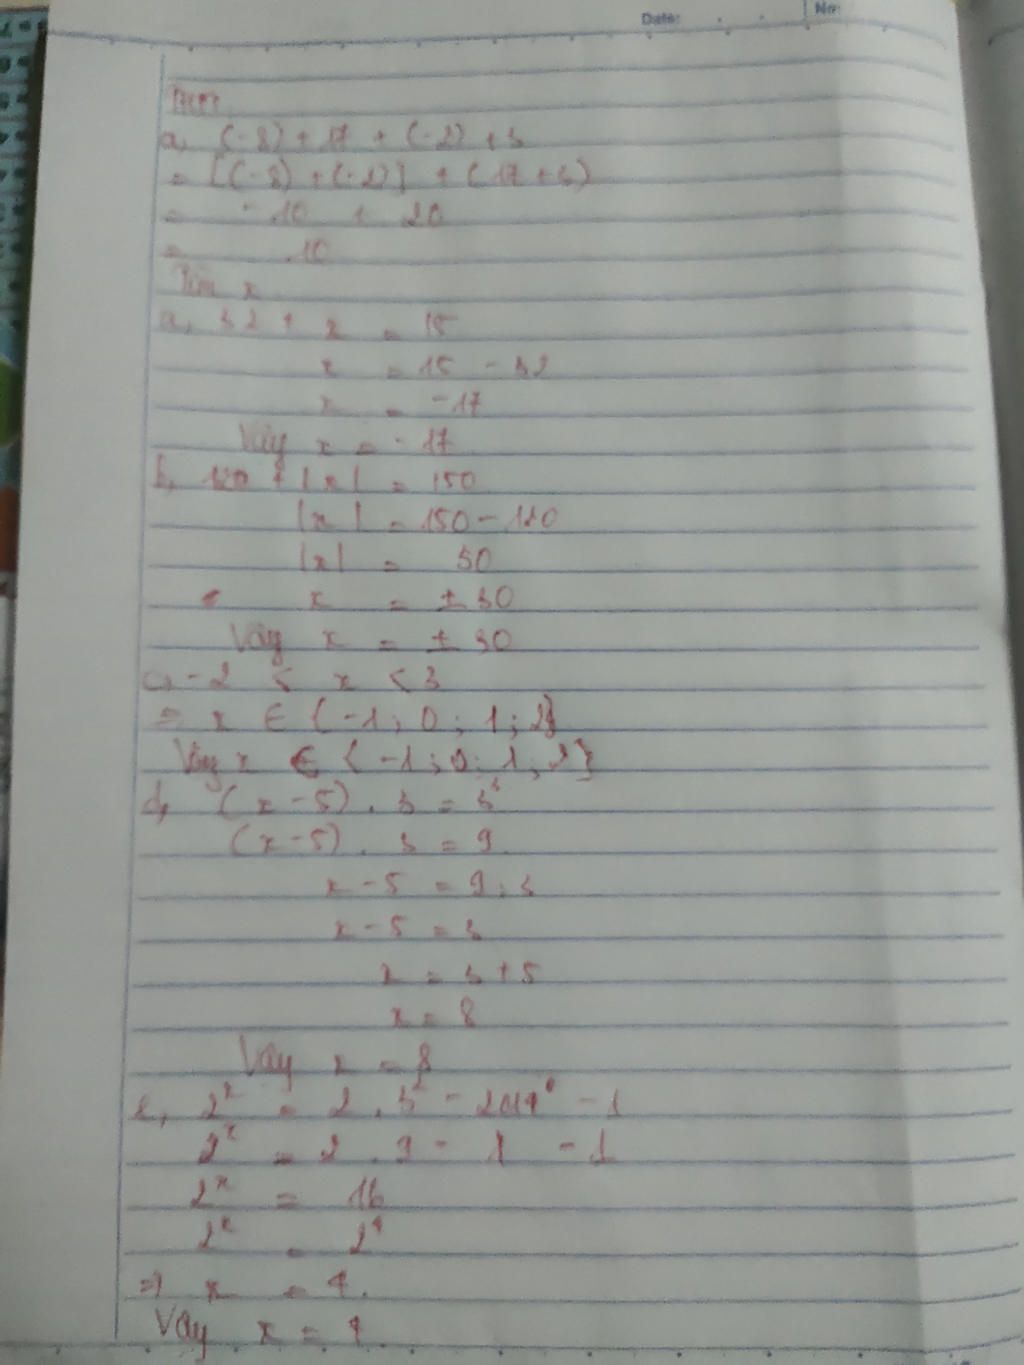 Date: No:
a, (-8) + 17 + (-2) + 3
= [(-8) + (-2)] + (17 + 3)
= -10 + 20
= 10
Tìm x
a, 32 + x = 15
x = 15 - 32
x = -17
Vậy x = -17
b, 120 + |x| = 150
|x| = 150 - 120
|x| = 30
x = ± 30
Vậy x = ± 30
c, -2 < x < 3
=> x ∈ {-1; 0; 1; 2}
Vậy x ∈ {-1; 0; 1; 2}
d, (x - 5) . 3 = 3²
(x - 5) . 3 = 9
x - 5 = 9 : 3
x - 5 = 3
x = 3 + 5
x = 8
Vậy x = 8
e, 2ˣ = 2 . 3² - 2019⁰ - 1
2ˣ = 2 . 9 - 1 - 1
2ˣ = 16
2ˣ = 2⁴
=> x = 4.
Vậy x = 4